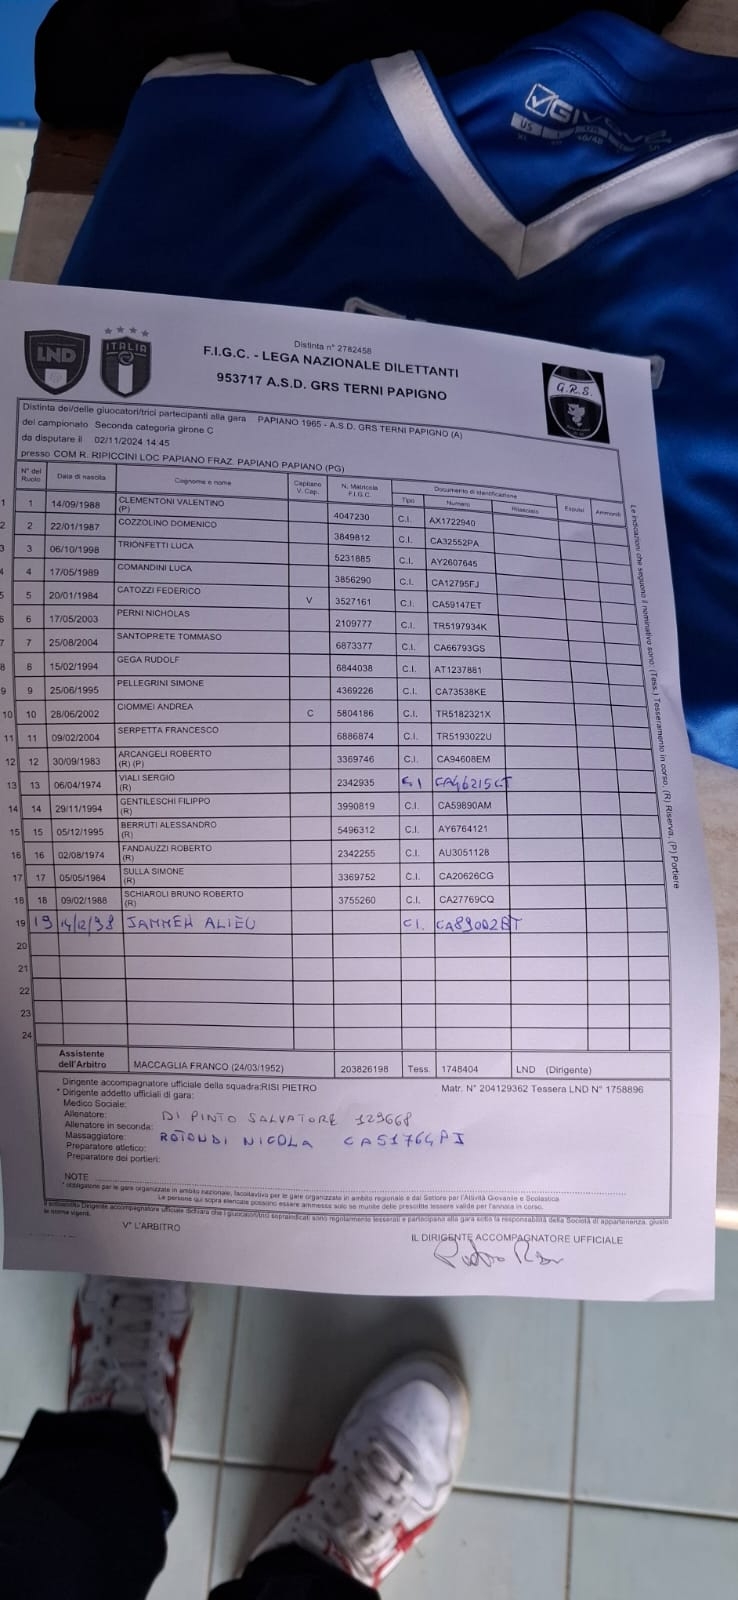 GIVOVA
US
LND
ITALIA
G.R.S.
Distinta n° 2782458
F.I.G.C. - LEGA NAZIONALE DILETTANTI
953717 A.S.D. GRS TERNI PAPIGNO
Distinta dei/delle giuocatori/trici partecipanti alla gara PAPIANO 1965 - A.S.D. GRS TERNI PAPIGNO (A)
del campionato Seconda categoria girone C
da disputare il 02/11/2024 14:45
presso COM R. RIPICCINI LOC PAPIANO FRAZ. PAPIANO PAPIANO (PG)
N° del Ruolo Data di nascita Cognome e nome Capitano V. Cap. N. Matricola F.I.G.C. Documento di identificazione Tipo Numero Rilasciato Espulsi Ammoniti
1 1 14/09/1988 CLEMENTONI VALENTINO (P) 4047230 C.I. AX1722940
2 2 22/01/1987 COZZOLINO DOMENICO 3849812 C.I. CA32552PA
3 3 06/10/1998 TRIONFETTI LUCA 5231885 C.I. AY2607645
4 4 17/05/1989 COMANDINI LUCA 3856290 C.I. CA12795FJ
5 5 20/01/1984 CATOZZI FEDERICO V 3527161 C.I. CA59147ET
6 6 17/05/2003 PERNI NICHOLAS 2109777 C.I. TR5197934K
7 7 25/08/2004 SANTOPRETE TOMMASO 6873377 C.I. CA66793GS
8 8 15/02/1994 GEGA RUDOLF 6844038 C.I. AT1237881
9 9 25/06/1995 PELLEGRINI SIMONE 4369226 C.I. CA73538KE
10 10 28/06/2002 CIOMMEI ANDREA C 5804186 C.I. TR5182321X
11 11 09/02/2004 SERPETTA FRANCESCO 6886874 C.I. TR5193022U
12 12 30/09/1983 ARCANGELI ROBERTO (R) (P) 3369746 C.I. CA94608EM
13 13 06/04/1974 VIALI SERGIO (R) 2342935 CA46215CT
14 14 29/11/1994 GENTILESCHI FILIPPO (R) 3990819 C.I. CA59890AM
15 15 05/12/1995 BERRUTI ALESSANDRO (R) 5496312 C.I. AY6764121
16 16 02/08/1974 FANDAUZZI ROBERTO (R) 2342255 C.I. AU3051128
17 17 05/05/1984 SULLA SIMONE (R) 3369752 C.I. CA20626CG
18 18 09/02/1988 SCHIAROLI BRUNO ROBERTO (R) 3755260 C.I. CA27769CQ
19 19 14/12/98 JAMMEH ALIEU CI. CA89002BT
20
21
22
23
24
Le indicazioni che seguono il nominativo sono: (Tess.) Tesseramento in corso, (R) Riserva, (P) Portiere
Assistente dell'Arbitro MACCAGLIA FRANCO (24/03/1952) 203826198 Tess. 1748404 LND (Dirigente)
Dirigente accompagnatore ufficiale della squadra:RISI PIETRO Matr. N° 204129362 Tessera LND N° 1758896
* Dirigente addetto ufficiali di gara:
Medico Sociale:
Allenatore: DI PINTO SALVATORE 123668
Allenatore in seconda:
Massaggiatore: ROTONDI NICOLA CA51764PI
Preparatore atletico:
Preparatore dei portieri:
NOTE
* obbligatorio per le gare organizzate in ambito nazionale, facoltativo per le gare organizzate in ambito regionale e dal Settore per l'Attività Giovanile e Scolastica
Le persone qui sopra elencate possono essere ammesse solo se munite delle prescritte tessere valide per l'annata in corso.
Il sottoscritto Dirigente accompagnatore ufficiale dichiara che i giuocatori/trici sopraindicati sono regolarmente tesserati e partecipano alla gara sotto la responsabilità della Società di appartenenza, giusto le norme vigenti.
V° L'ARBITRO
IL DIRIGENTE ACCOMPAGNATORE UFFICIALE